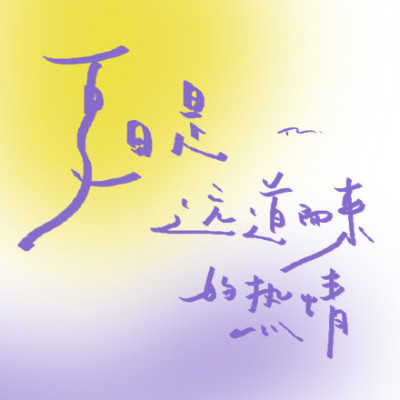 夏日是
远道而来
的热情